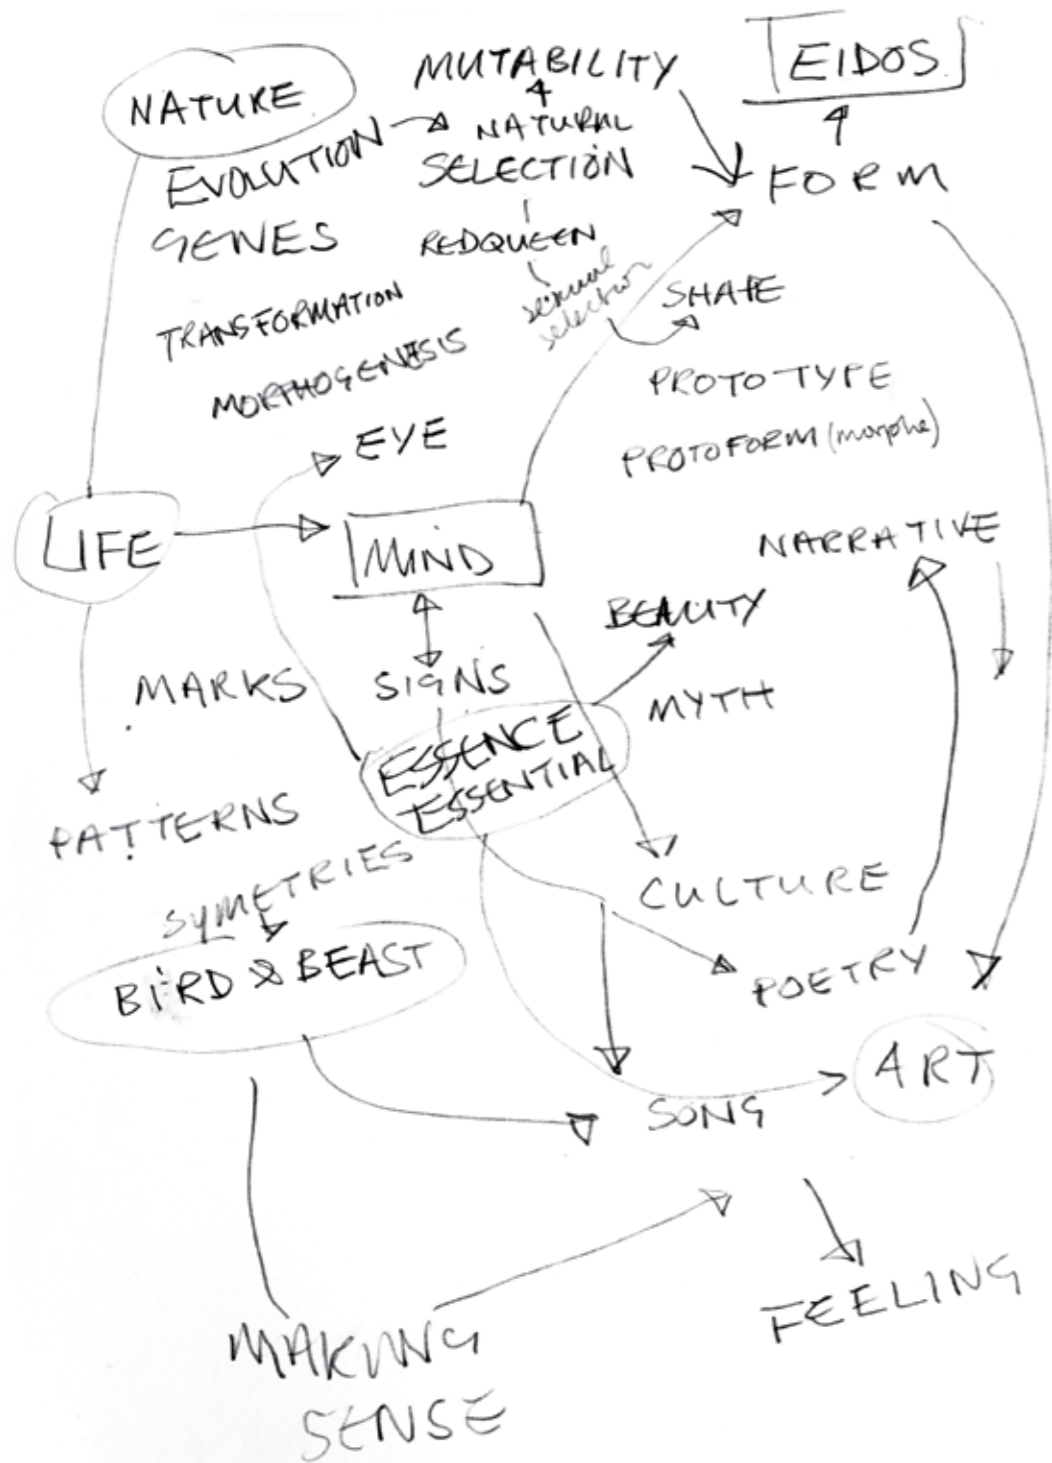 NATURE
MUTABILITY
EIDOS
EVOLUTION
NATURAL
SELECTION
FORM
GENES
REDQUEEN
sexual
selection
SHAPE
TRANSFORMATION
MORPHOGENESIS
PROTOTYPE
PROTOFORM (morphe)
EYE
LIFE
MIND
NARRATIVE
BEAUTY
MARKS
SIGNS
MYTH
ESSENCE
ESSENTIAL
PATTERNS
SYMETRIES
CULTURE
BIRD & BEAST
POETRY
ART
SONG
FEELING
MAKING
SENSE